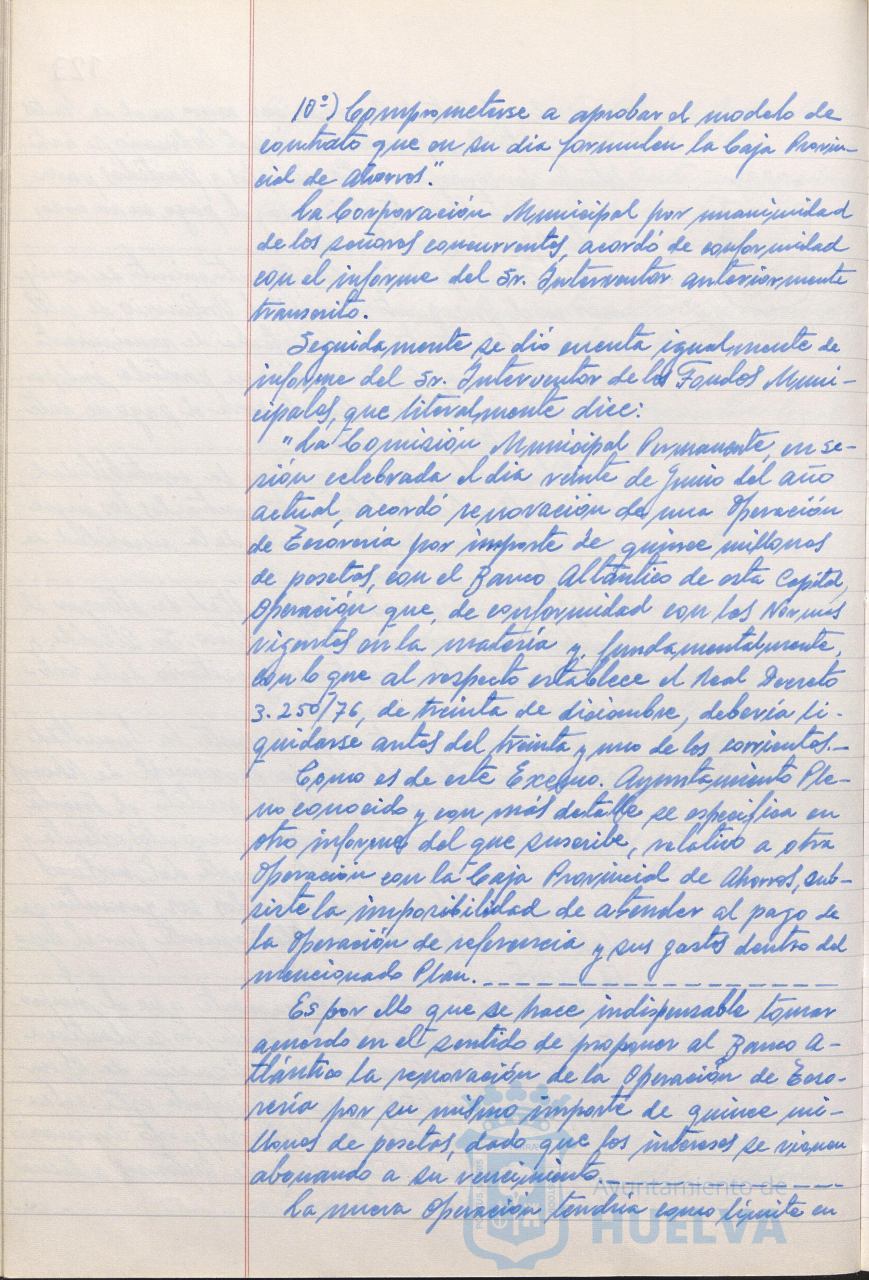 10º) Comprometerse a aprobar el modelo de
contrato que en su dia formulen la Caja Provin-
cial de Ahorros".
La Corporación Municipal por unanimidad
de los señores concurrentes, acordó de conformidad
con el informe del Sr. Interventor anteriormente
transcrito.
Seguidamente se dió cuenta igualmente de
informe del Sr. Interventor de los Fondos Muni-
cipales, que literalmente dice:
"La Comisión Municipal Permanente, en se-
sión celebrada el dia veinte de Junio del año
actual, acordó renovación de una Operación
de Tesorería por importe de quince millones
de pesetas, con el Banco Atlántico de esta Capital,
Operación que, de conformidad con las Normas
vigentes en la materia y, fundamentalmente,
con lo que al respecto establece el Real Decreto
3.250/76, de treinta de diciembre, debería li-
quidarse antes del treinta y uno de los corrientes.-
Como es de este Excmo. Ayuntamiento Ple-
no conocido y con más detalle se especifica en
otro informe del que suscribe, relativo a otra
Operación con la Caja Provincial de Ahorros, sub-
siste la imposibilidad de atender al pago de
la Operación de referencia y sus gastos dentro del
mencionado Plan.
Es por ello que se hace indispensable tomar
acuerdo en el sentido de proponer al Banco A-
tlántico la renovación de la Operación de Teso-
rería por su mismo importe de quince mi-
llones de pesetas, dado que los intereses se vienen
abonando a su vencimiento.
Ayuntamiento de
La nueva Operación tendría como límite en
HUELVA